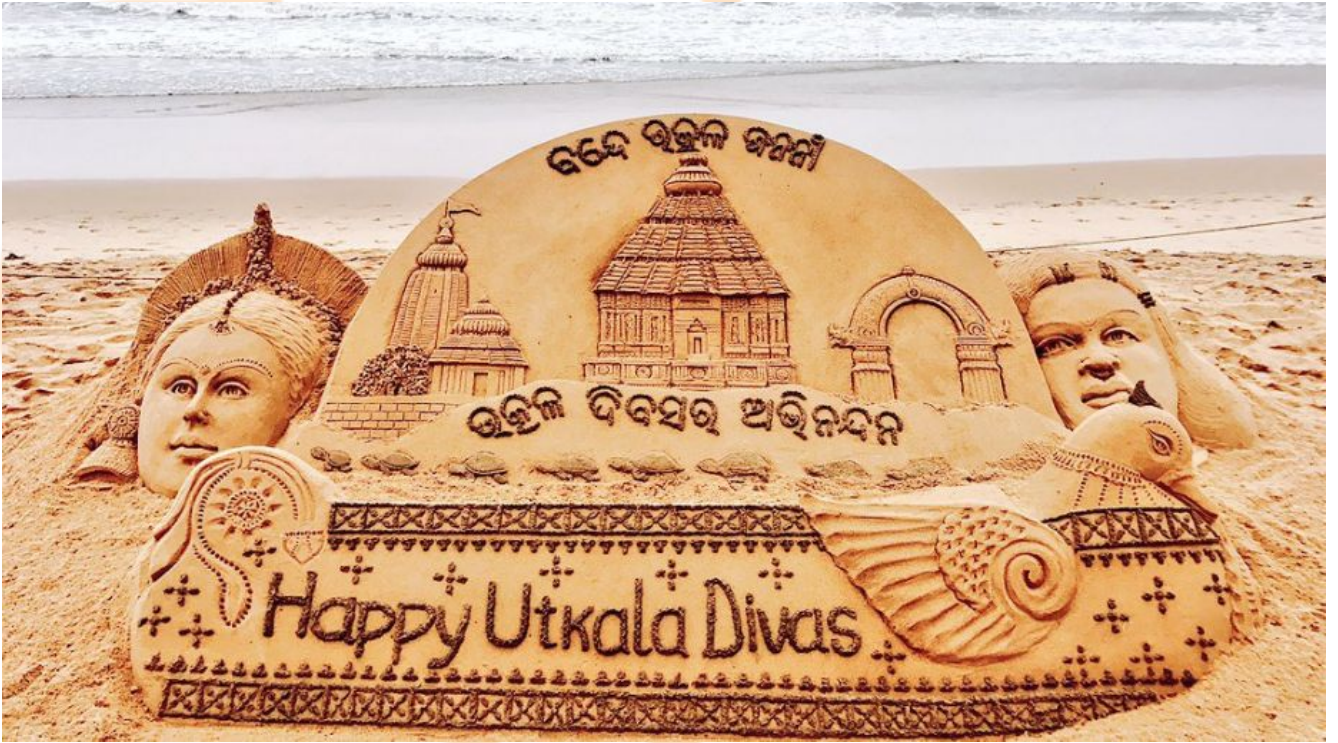 ବନ୍ଦେ ଉତ୍କଳ ଜନନୀ
ଉତ୍କଳ ଦିବସର ଅଭିନନ୍ଦନ
Happy Utkala Divas